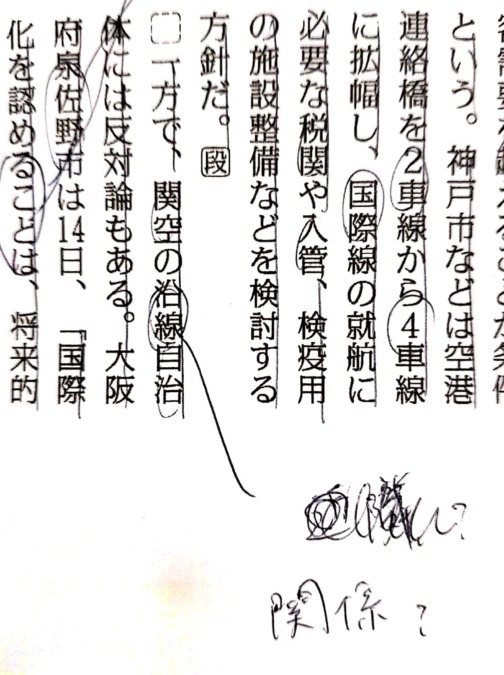 という。神戸市などは空港
連絡橋を2車線から4車線
に拡幅し、国際線の就航に
必要な税関や入管、検疫用
の施設整備などを検討する
方針だ。段
一方で、関空の沿線自治
体には反対論もある。大阪
府泉佐野市は14日、「国際
化を認めることは、将来的
関係?